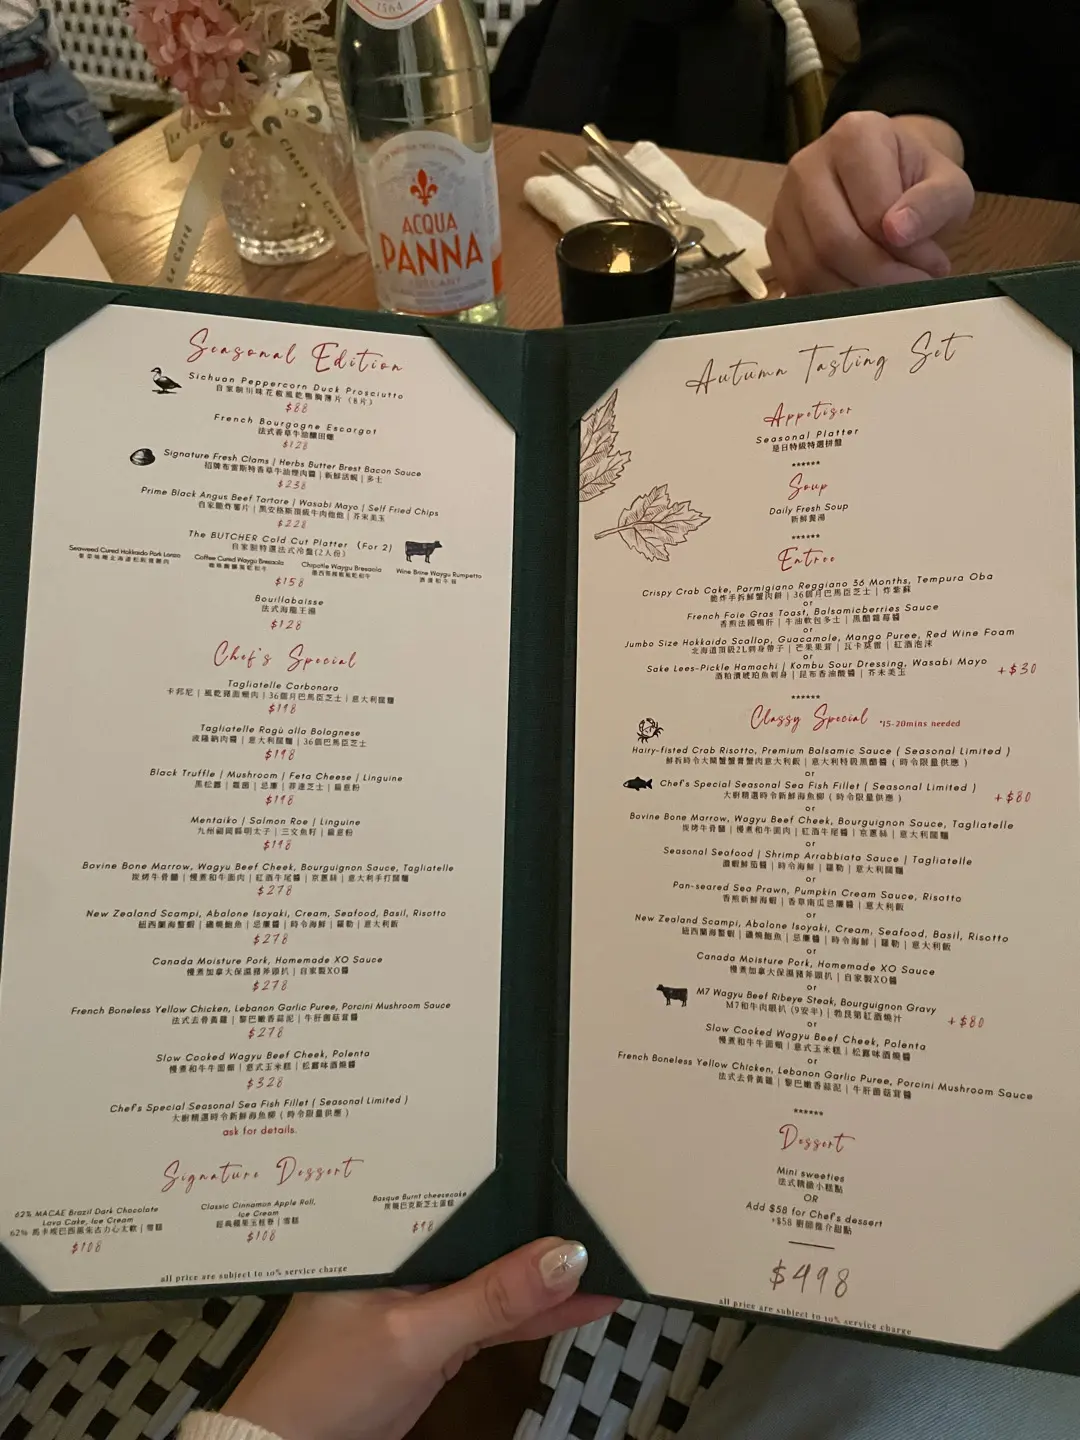 1564
Le Carré
Classy Le Carré
ACQUA
PANNA
TUSCANY
Seasonal Edition
Sichuan Peppercorn Duck Prosciutto
自家製川味花椒風乾鴨胸薄片（8片）
$88
French Bourgogne Escargot
法式香草牛油釀田螺
$128
Signature Fresh Clams | Herbs Butter Brest Bacon Sauce
招牌布雷斯特香草牛油煙肉醬 | 新鮮活蜆 | 多士
$238
Prime Black Angus Beef Tartare | Wasabi Mayo | Self Fried Chips
自家脆炸薯片 | 黑安格斯頂級牛肉他他 | 芥末美玉
$228
The BUTCHER Cold Cut Platter （For 2）
自家制特選法式冷盤(2人份)
Seaweed Cured Hokkaido Pork Lonzo
Coffee Cured Wagyu Bresaola
Chipotle Wagyu Bresaola
Wine Brine Wagyu Rumpetto
$158
Bouillabaisse
法式海龍王湯
$128
Chef's Special
Tagliatelle Carbonara
卡邦尼 | 風乾豬面頰肉 | 36個月巴馬臣芝士 | 意大利闊麵
$198
Tagliatelle Ragù alla Bolognese
波隆納肉醬 | 意大利闊麵 | 36個巴馬臣芝士
$198
Black Truffle | Mushroom | Feta Cheese | Linguine
黑松露 | 雜菌 | 忌廉 | 菲達芝士 | 扁意粉
$198
Mentaiko | Salmon Roe | Linguine
九州福岡縣明太子 | 三文魚籽 | 扁意粉
$198
Bovine Bone Marrow, Wagyu Beef Cheek, Bourguignon Sauce, Tagliatelle
炭烤牛骨髓 | 慢煮和牛面肉 | 紅酒牛尾醬 | 京蔥絲 | 意大利手打闊麵
$278
New Zealand Scampi, Abalone Isoyaki, Cream, Seafood, Basil, Risotto
紐西蘭海螯蝦 | 磯燒鮑魚 | 忌廉醬 | 時令海鮮 | 羅勒 | 意大利飯
$278
Canada Moisture Pork, Homemade XO Sauce
慢煮加拿大保濕豬斧頭扒 | 自家製XO醬
$278
French Boneless Yellow Chicken, Lebanon Garlic Puree, Porcini Mushroom Sauce
法式去骨黃雞 | 黎巴嫩香蒜泥 | 牛肝菌菇茸醬
$278
Slow Cooked Wagyu Beef Cheek, Polenta
慢煮和牛牛面頰 | 意式玉米糕 | 松露味酒燒醬
$328
Chef's Special Seasonal Sea Fish Fillet ( Seasonal Limited )
大廚精選時令新鮮海魚柳 ( 時令限量供應 )
ask for details.
Signature Dessert
62% MACAE Brazil Dark Chocolate
Lava Cake, Ice Cream
62% 馬卡埃巴西黑朱古力心太軟 | 雪糕
$108
Classic Cinnamon Apple Roll,
Ice Cream
經典蘋果玉桂卷 | 雪糕
$108
Basque Burnt cheesecake
炭燒巴克斯芝士蛋糕
$98
all price are subject to 10% service charge
Autumn Tasting Set
Appetiser
Seasonal Platter
是日特級特選拼盤
******
Soup
Daily Fresh Soup
新鮮餐湯
******
Entree
Crispy Crab Cake, Parmigiano Reggiano 36 Months, Tempura Oba
脆炸手拆鮮蟹肉餅 | 36個月巴馬臣芝士 | 炸紫蘇
or
French Foie Gras Toast, Balsamicberries Sauce
香煎法國鴨肝 | 牛油軟包多士 | 黑醋雜莓醬
or
Jumbo Size Hokkaido Scallop, Guacamole, Mango Puree, Red Wine Foam
北海道頂級2L刺身帶子 | 芒果果茸 | 瓦卡莫雷 | 紅酒泡沫
or
Sake Lees-Pickle Hamachi | Kombu Sour Dressing, Wasabi Mayo +$30
酒粕漬琥珀魚刺身 | 昆布香油醋醬 | 芥末美玉
******
Classy Special *15-20mins needed
Hairy-fisted Crab Risotto, Premium Balsamic Sauce ( Seasonal Limited )
鮮拆時令大閘蟹蟹膏蟹肉意大利飯 | 意大利特級黑醋醬 ( 時令限量供應 )
or
Chef's Special Seasonal Sea Fish Fillet ( Seasonal Limited ) +$80
大廚精選時令新鮮海魚柳 ( 時令限量供應 )
or
Bovine Bone Marrow, Wagyu Beef Cheek, Bourguignon Sauce, Tagliatelle
炭烤牛骨髓 | 慢煮和牛面肉 | 紅酒牛尾醬 | 京蔥絲 | 意大利闊麵
or
Seasonal Seafood | Shrimp Arrabbiata Sauce | Tagliatelle
濃蝦鮮茄醬 | 時令海鮮 | 羅勒 | 意大利闊麵
or
Pan-seared Sea Prawn, Pumpkin Cream Sauce, Risotto
香煎新鮮海蝦 | 香草南瓜忌廉醬 | 意大利飯
or
New Zealand Scampi, Abalone Isoyaki, Cream, Seafood, Basil, Risotto
紐西蘭海螯蝦 | 磯燒鮑魚 | 忌廉醬 | 時令海鮮 | 羅勒 | 意大利飯
or
Canada Moisture Pork, Homemade XO Sauce
慢煮加拿大保濕豬斧頭扒 | 自家製XO醬
or
M7 Wagyu Beef Ribeye Steak, Bourguignon Gravy +$80
M7和牛肉眼扒 (9安半) | 勃艮第紅酒燒汁
or
Slow Cooked Wagyu Beef Cheek, Polenta
慢煮和牛牛面頰 | 意式玉米糕 | 松露味酒燒醬
or
French Boneless Yellow Chicken, Lebanon Garlic Puree, Porcini Mushroom Sauce
法式去骨黃雞 | 黎巴嫩香蒜泥 | 牛肝菌菇茸醬
******
Dessert
Mini sweeties
法式精緻小糕點
OR
Add $58 for Chef's dessert
+$58 廚師推介甜點
$498
all price are subject to 10% service charge